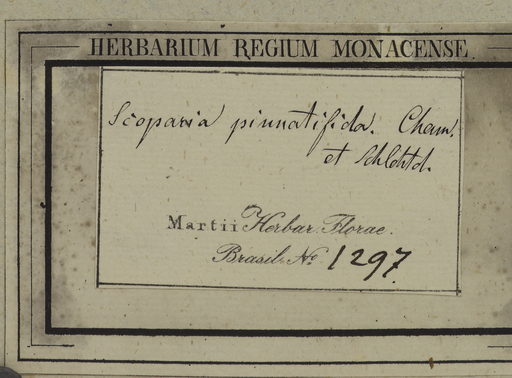 HERBARIUM REGIUM MONACENSE
Scoparia pinnatifida. Cham.
et Schlchtd.
Martii Herbar. Florae.
Brasil. No. 1297.